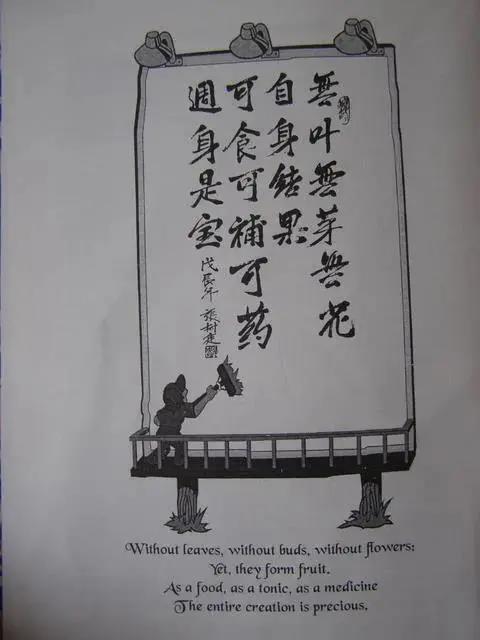 無叶無芽無花
自身结果
可食可補可药
週身是宝
戊辰年 張树庭
Without leaves, without buds, without flowers:
Yet, they form fruit.
As a food, as a tonic, as a medicine
The entire creation is precious.